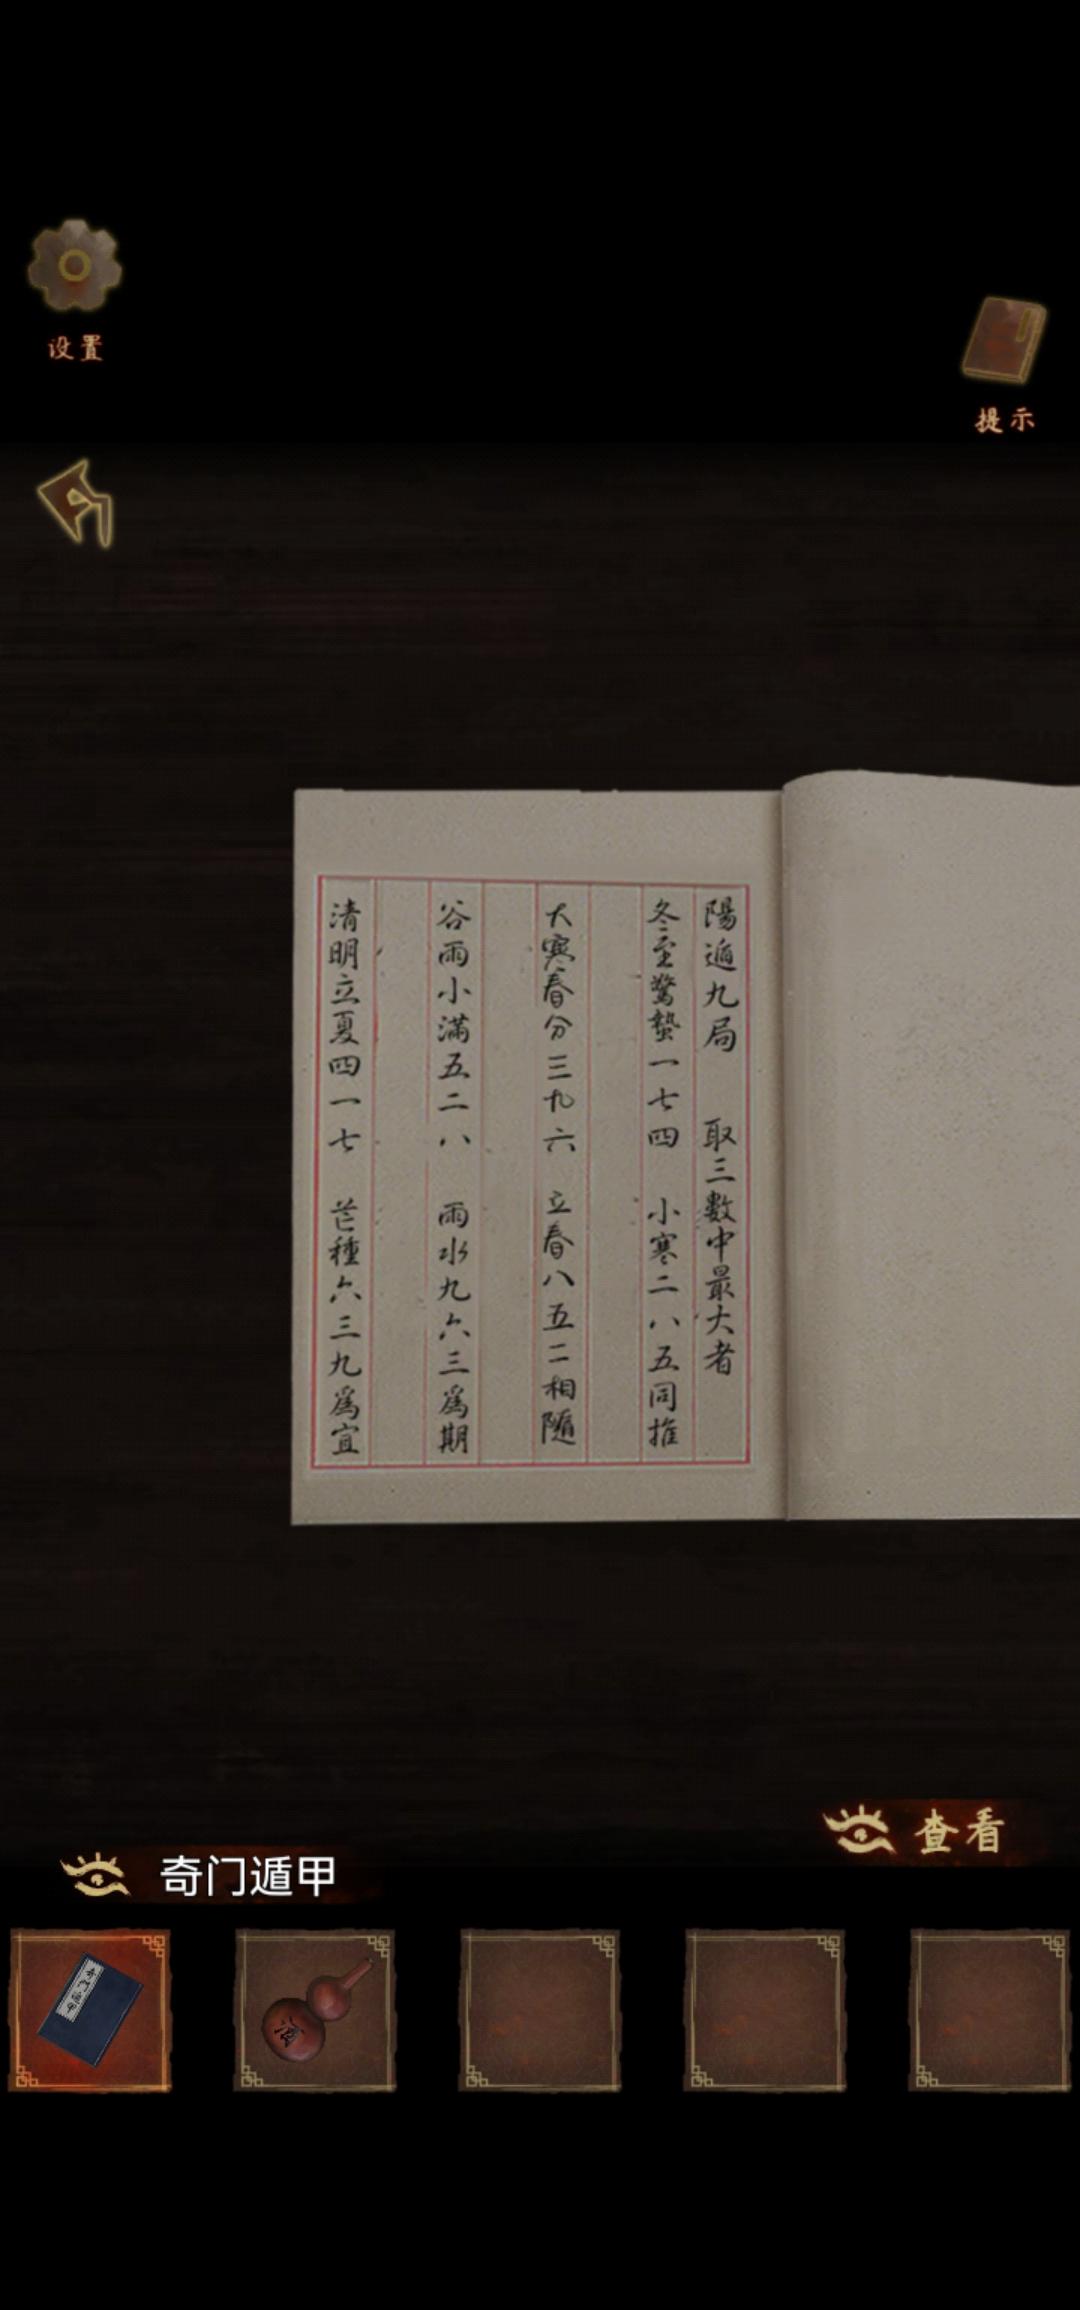 设置
提示
陽遁九局 取三數中最大者
冬至驚蟄一七四 小寒二八五同推
大寒春分三九六 立春八五二相隨
谷雨小滿五二八 雨水九六三為期
清明立夏四一七 芒種六三九為宜
查看
奇门遁甲
奇門遁甲
酒